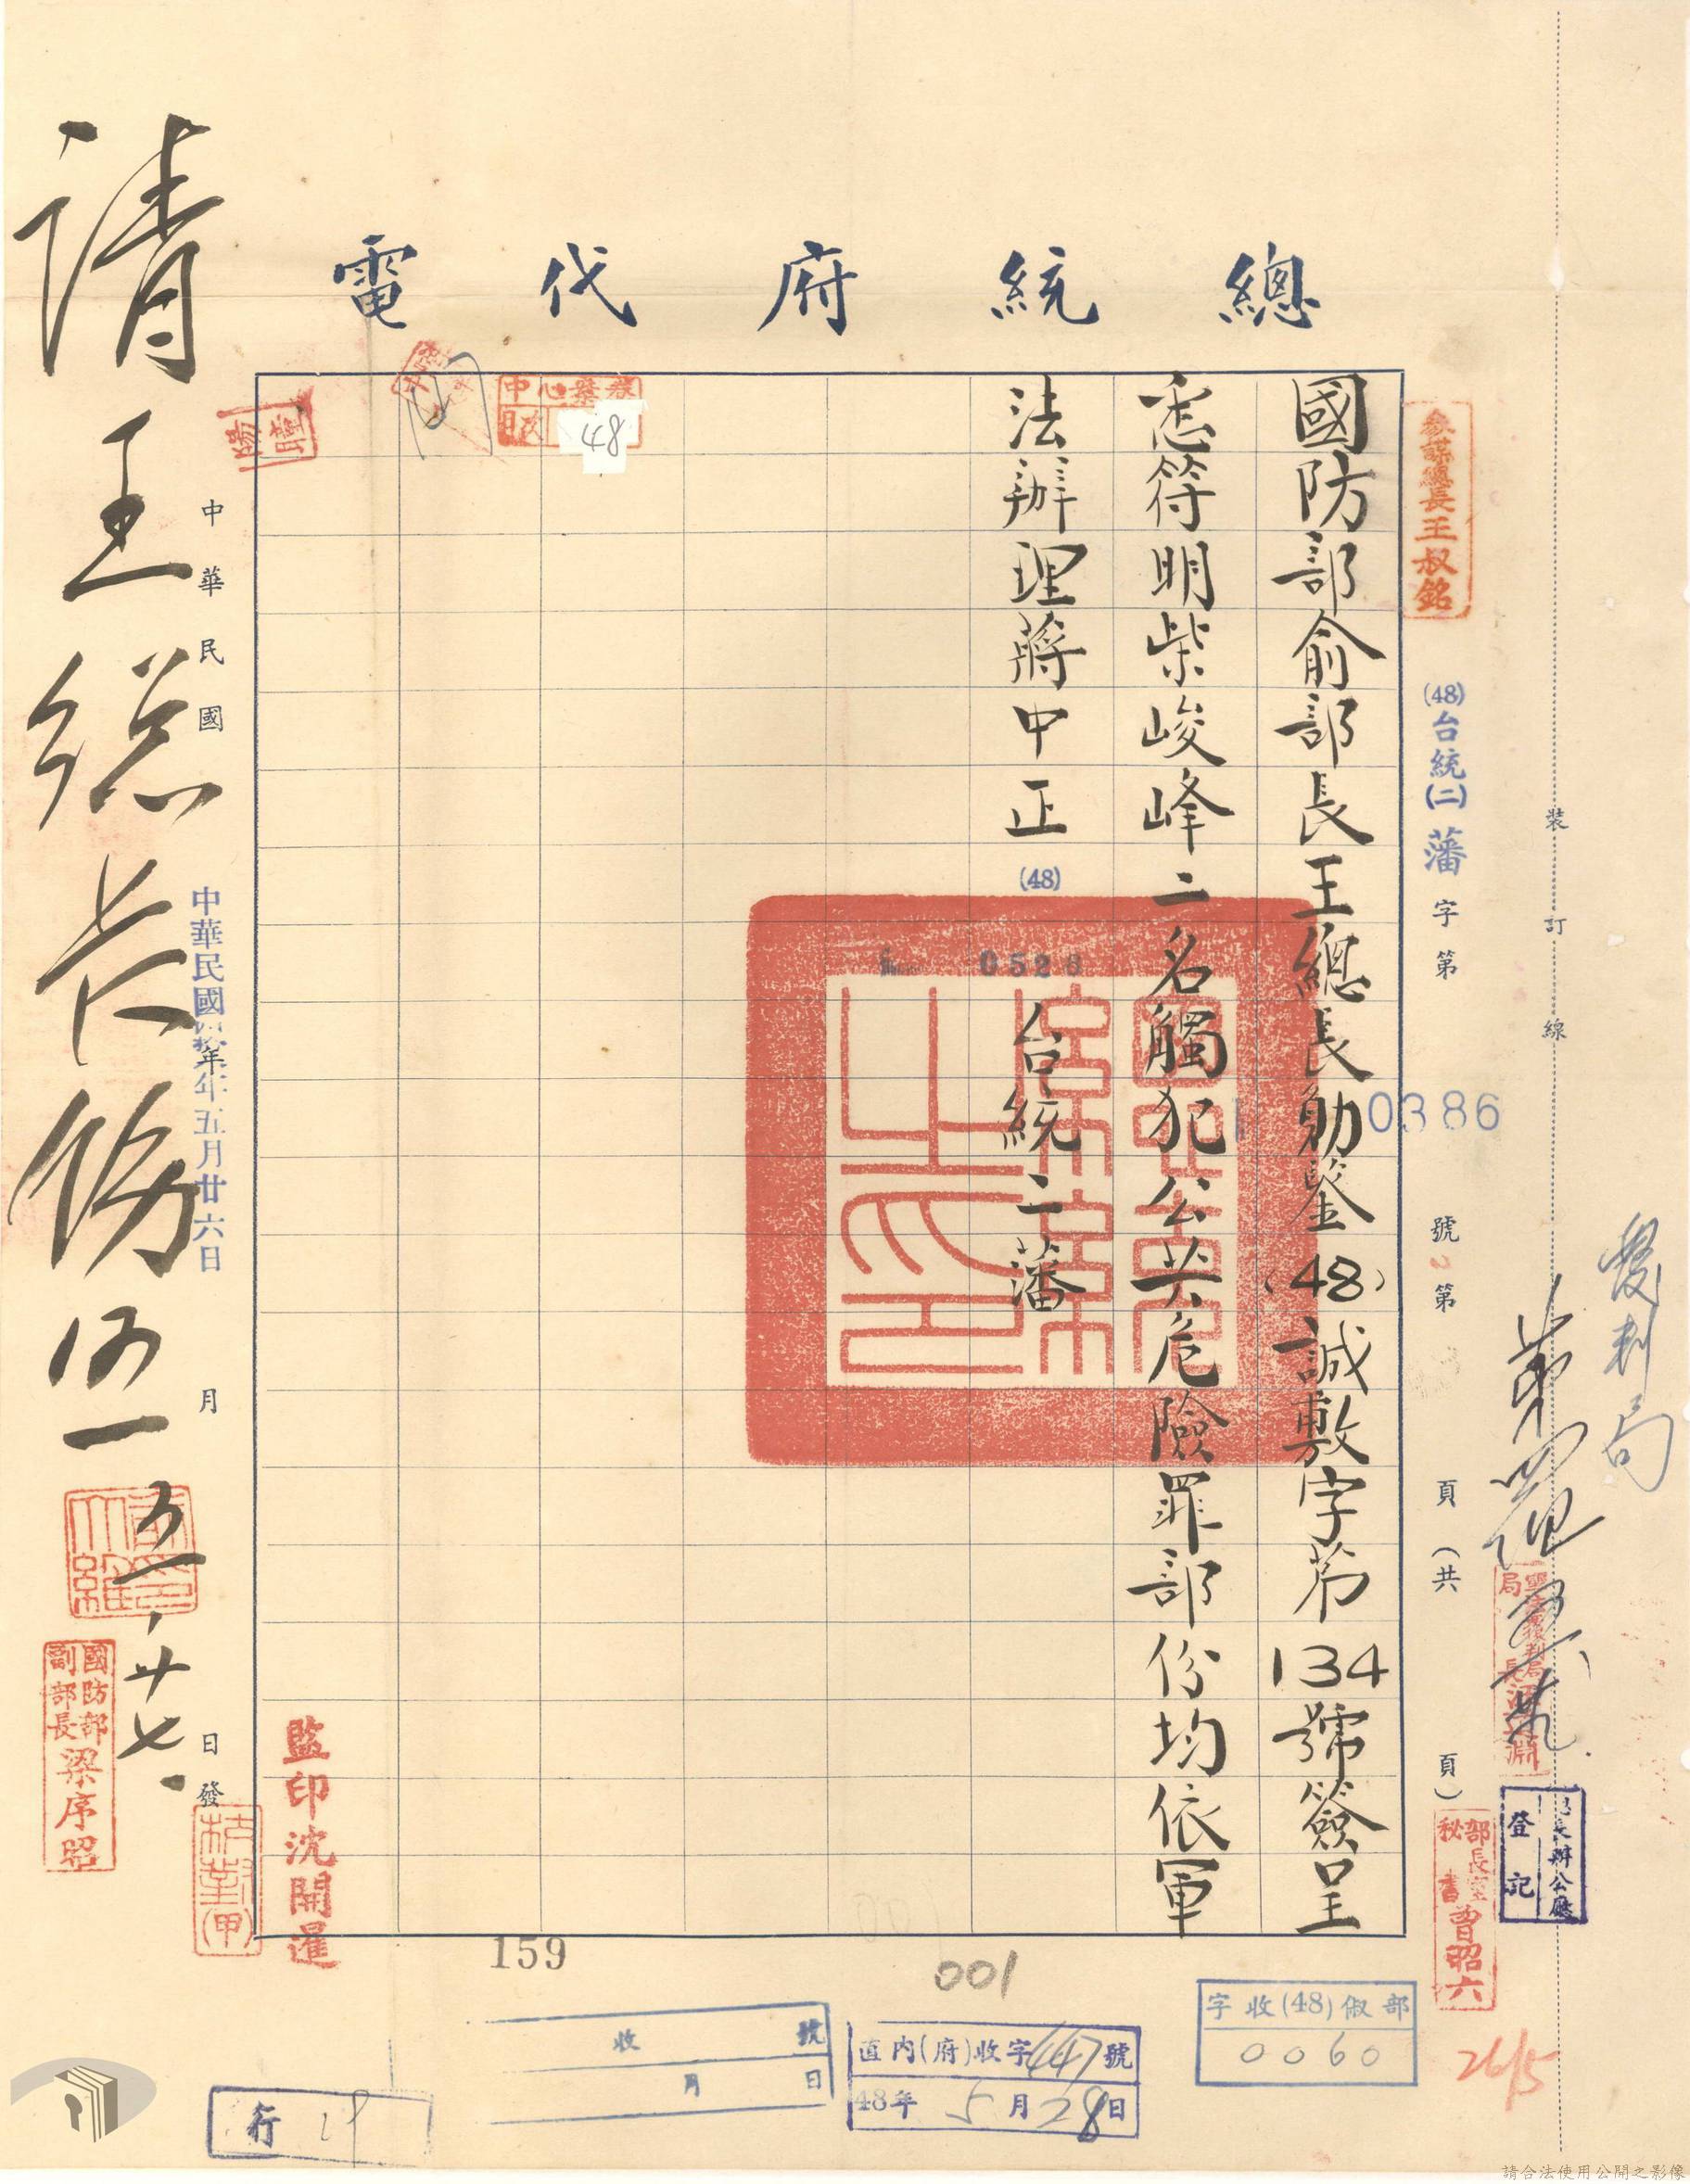 總統府代電
參謀總長王叔銘
(48)台統(二)藩字第
0386
號第
頁(共
頁)
裝訂線
國防部俞部長王總長勛鑒(48)誠敷字第134號簽呈
悉符明柴峻峰二名觸犯公共危險罪部份均依軍
法辦理蔣中正
(48)
0528
台統二藩
中心案卷
目次
48
監印沈開暹
中華民國
月
日發
中華民國
年五月廿六日
請王總長物
五、廿七、
國防部
副部長梁序昭
覆判局
部長室
秘書曾昭六
總長辦公廳
登記
159
001
部俶(48)收字
0060
26/5
直內(府)收字447號
48年5月28日
收 號
月 日
行
請合法使用公開之影像